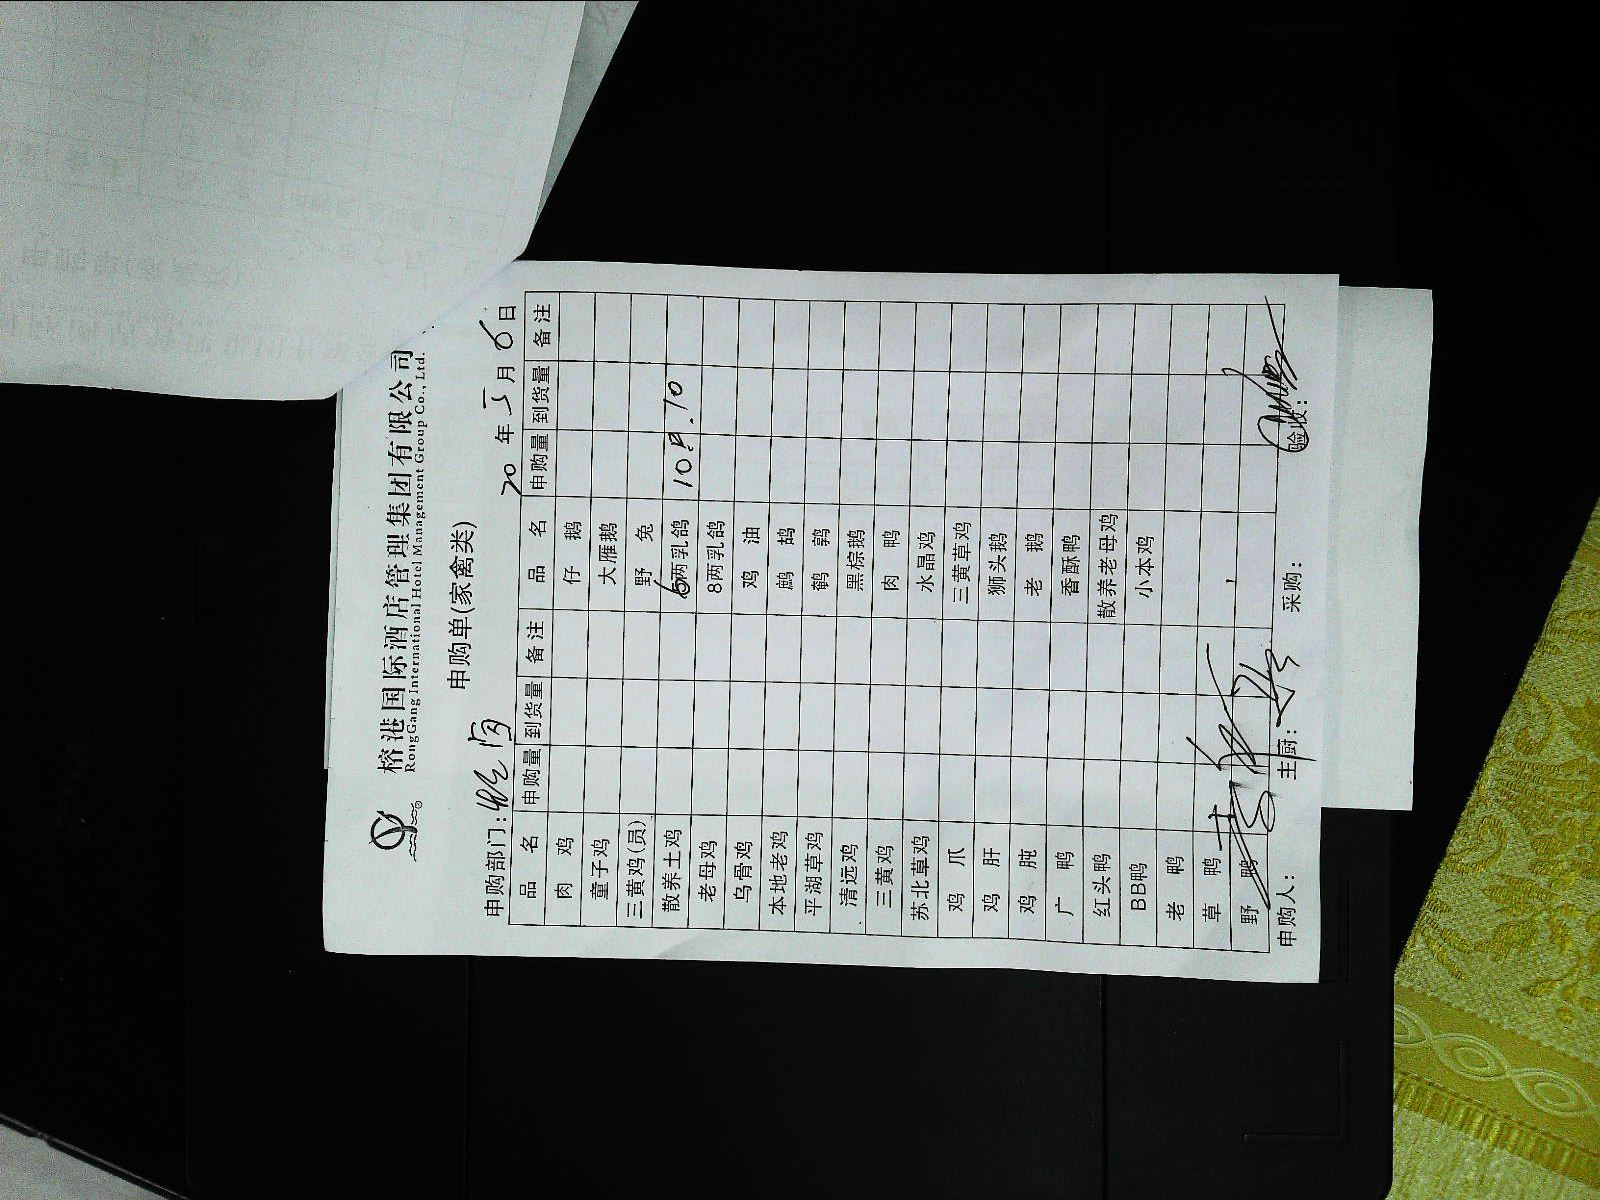 榕港国际酒店管理集团有限公司
RongGang International Hotel Management Group Co., Ltd.
申购单(家禽类)
申购部门: 20 年 5 月 6 日
品 名 申购量 到货量 备 注 品 名 申购量 到货量 备 注
肉 鸡 仔 鹅
童子鸡 大雁鹅
三黄鸡(员) 野 兔
散养土鸡 6两乳鸽 10只 10
老母鸡 8两乳鸽
乌骨鸡 鸡 油
本地老鸡 鹧 鸪
平湖草鸡 鹌 鹑
清远鸡 黑棕鹅
三黄鸡 肉 鸭
苏北草鸡 水晶鸡
鸡 爪 三黄草鸡
鸡 肝 狮头鹅
鸡 肫 老 鹅
广 鸭 香酥鸭
红头鸭 散养老母鸡
BB鸭 小本鸡
老 鸭
草 鸭
野 鸭
申购人: 主厨: 采购: 验收: